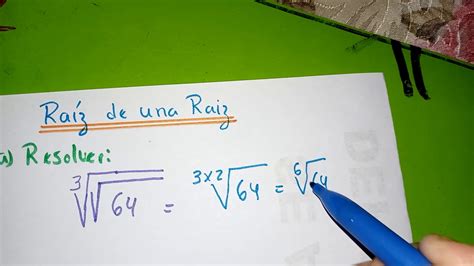 Raíz de una Raiz
a) Resolver:
∛√64 = ³ˣ²√64 = ⁶√64